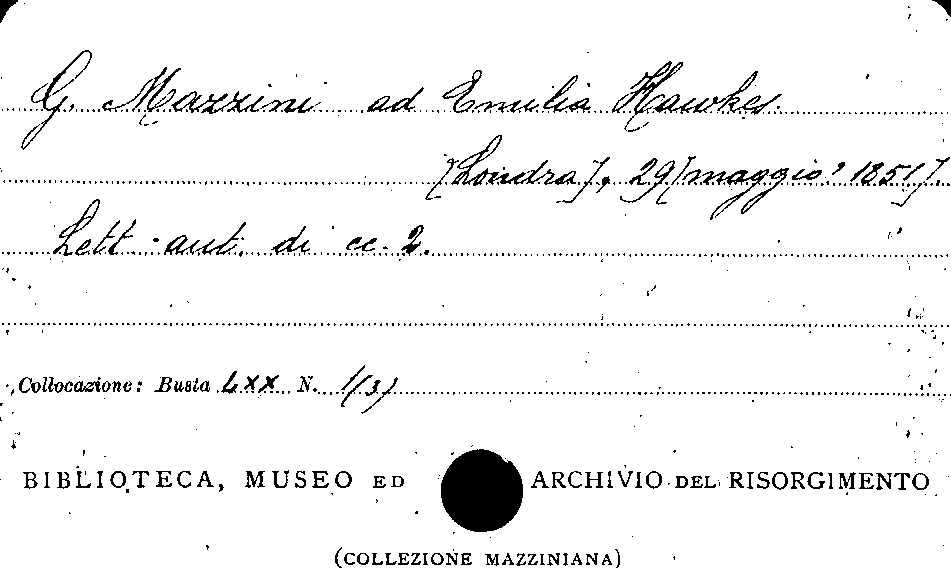 G. Mazzini ad Emilia Hawkes.
[Londra], 29 [maggio, 1851].
Lett. aut. di cc. 2.
Collocazione: Busta LXX N. 1(3)
BIBLIOTECA, MUSEO ED ARCHIVIO DEL RISORGIMENTO
(COLLEZIONE MAZZINIANA)